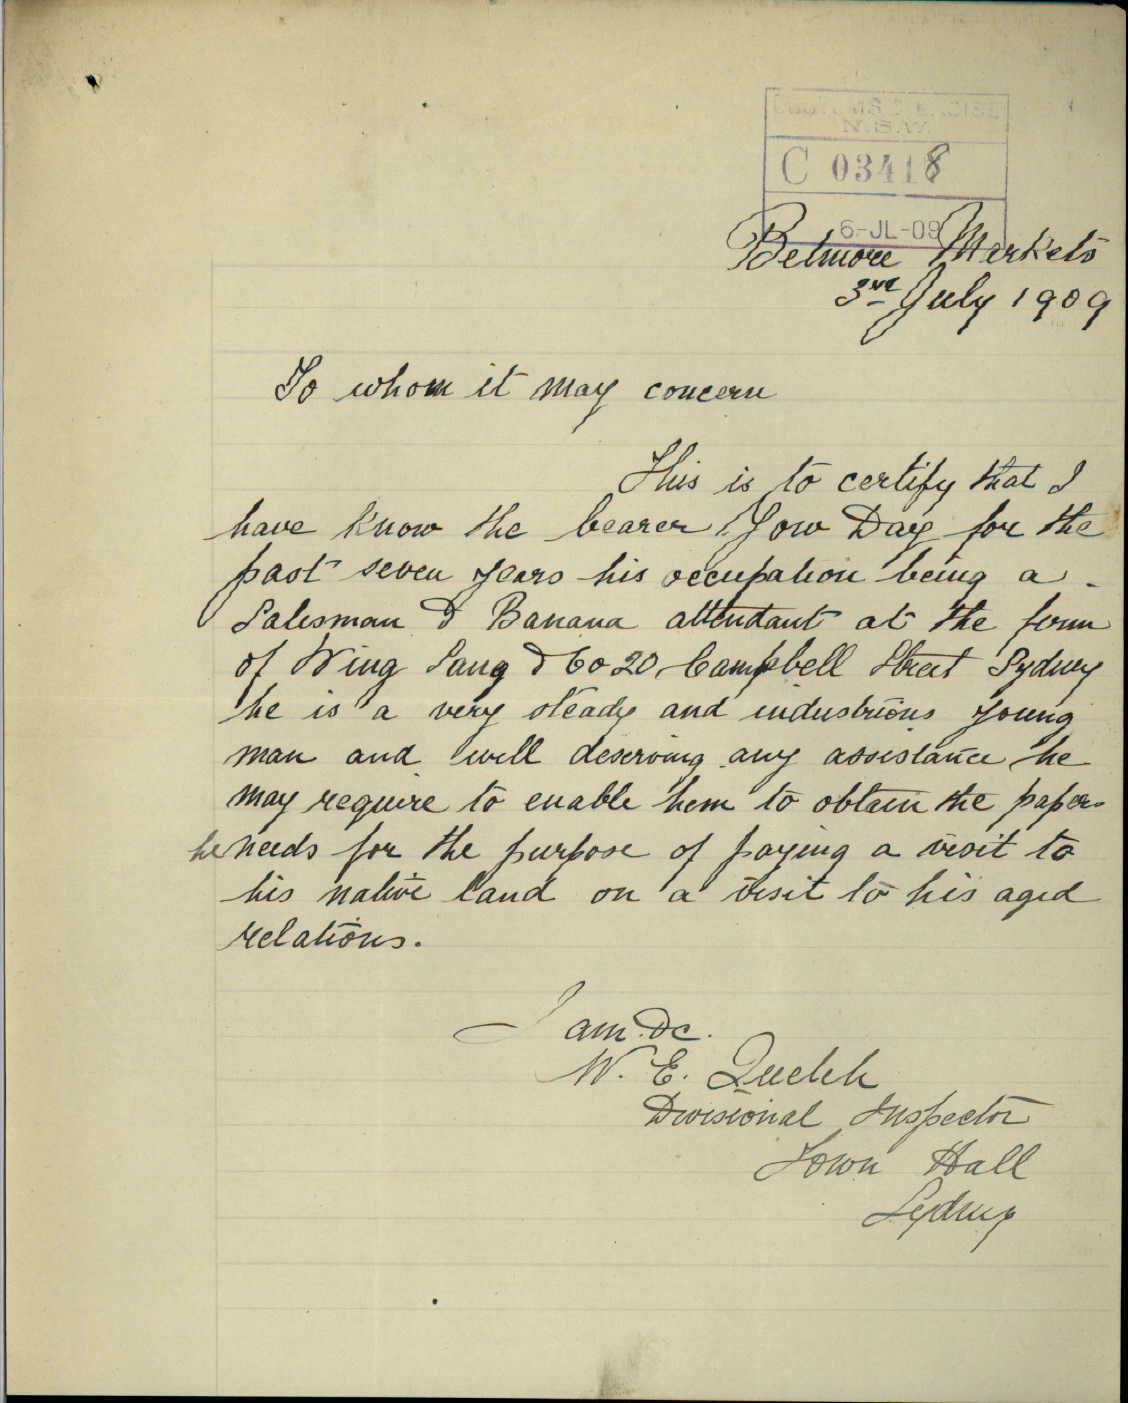 CUSTOMS & EXCISE
N.S.W.
C 03418
6-JL-09
Belmore Markets
3rd July 1909
To whom it may concern
This is to certify that I
have know the bearer Yow Day for the
past seven years his occupation being a
Salesman & Banana attendant at the firm
of Wing Sang & Co 20 Campbell Street Sydney
he is a very steady and industrious young
man and will deserving any assistance he
may require to enable hem to obtain the papers
he needs for the purpose of paying a visit to
his native land on a visit to his aged
relations.
I am &c.
W. E. Quelch
Divisional Inspector
Town Hall
Sydney